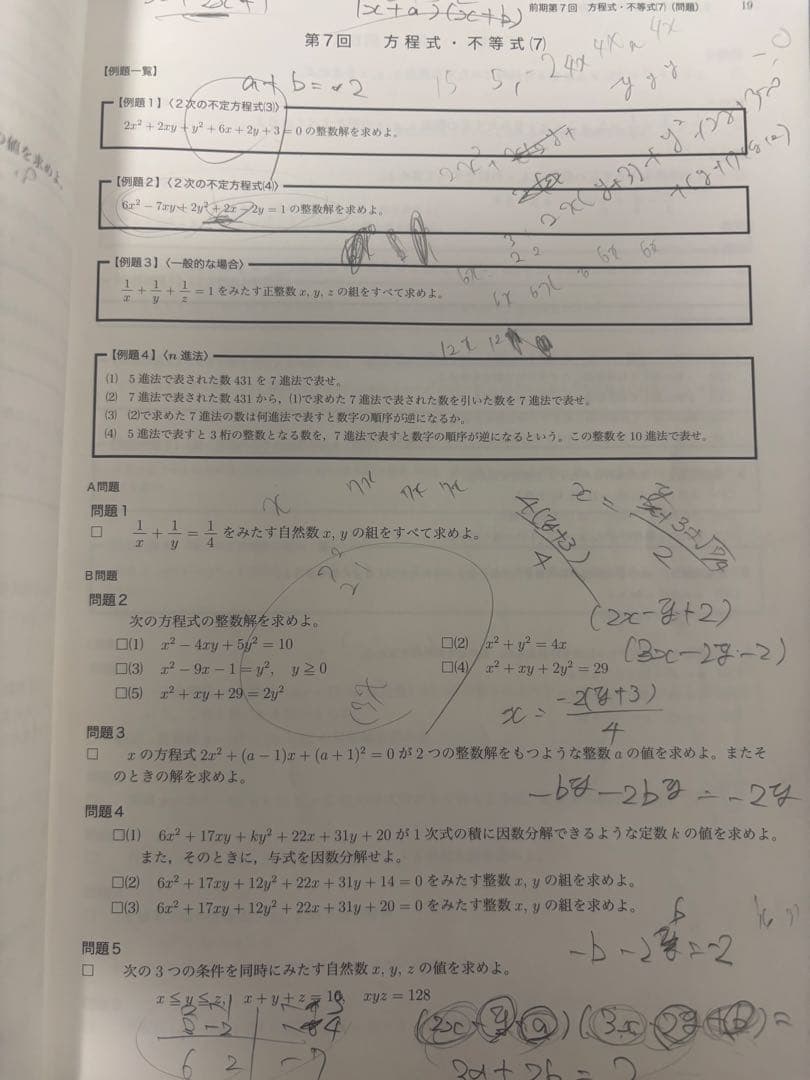 前期第7回 方程式・不等式(7)(問題) 19
(x+a)(x+b)
第7回 方程式・不等式(7)
【例題一覧】
a+b=-2
【例題1】〈2次の不定方程式(3)〉
2x² + 2xy + y² + 6x + 2y + 3 = 0 の整数解を求めよ。
【例題2】〈2次の不定方程式(4)〉
6x² − 7xy + 2y² + 2x − 2y = 1 の整数解を求めよ。
【例題3】〈一般的な場合〉
1/x + 1/y + 1/z = 1 をみたす正整数 x, y, z の組をすべて求めよ。
【例題4】〈n 進法〉
(1) 5進法で表された数 431 を 7 進法で表せ。
(2) 7進法で表された数 431 から, (1)で求めた 7 進法で表された数を引いた数を 7 進法で表せ。
(3) (2)で求めた 7 進法の数は何進法で表すと数字の順序が逆になるか。
(4) 5進法で表すと 3 桁の整数となる数を, 7 進法で表すと数字の順序が逆になるという。この整数を 10 進法で表せ。
A問題
問題1
□ 1/x + 1/y = 1/4 をみたす自然数 x, y の組をすべて求めよ。
B問題
問題2
次の方程式の整数解を求めよ。
□(1) x² − 4xy + 5y² = 10 □(2) x² + y² = 4x
□(3) x² − 9x − 1 = y², y ≧ 0 □(4) x² + xy + 2y² = 29
□(5) x² + xy + 29 = 2y²
(2x-y+2)
(3x-2y-2)
x = -2(y+3)/4
問題3
□ x の方程式 2x² + (a − 1)x + (a + 1)² = 0 が 2 つの整数解をもつような整数 a の値を求めよ。またそ
のときの解を求めよ。
-by-2by=-2y
問題4
□(1) 6x² + 17xy + ky² + 22x + 31y + 20 が 1 次式の積に因数分解できるような定数 k の値を求めよ。
また, そのときに, 与式を因数分解せよ。
□(2) 6x² + 17xy + 12y² + 22x + 31y + 14 = 0 をみたす整数 x, y の組を求めよ。
□(3) 6x² + 17xy + 12y² + 22x + 31y + 20 = 0 をみたす整数 x, y の組を求めよ。
問題5
□ 次の 3 つの条件を同時にみたす自然数 x, y, z の値を求めよ。
x ≦ y ≦ z, x + y + z = 16, xyz = 128
(2x-y+a)(3x-2y+b)=
3a+2b=2